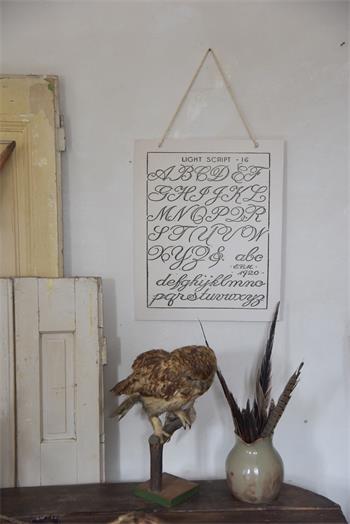 LIGHT SCRIPT - 16
ABCDEF
GHIJKL
MNOPQR
STUVW
XYZ & abc
E.R.M.
1920
defghijklmno
pqrstuvwxyz